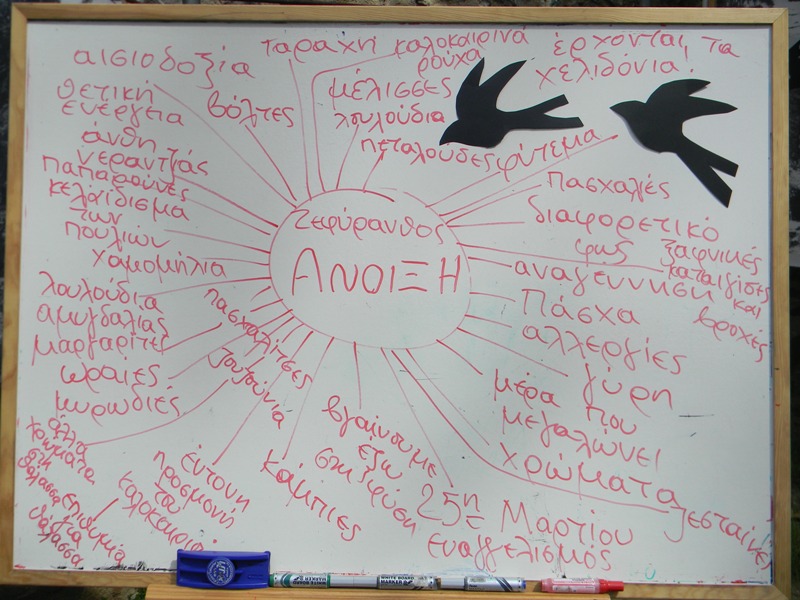 αισιοδοξία
ταραχή
καλοκαιρινά
ρούχα
έρχονται τα
χελιδόνια!
θετική
ενέργεια
βόλτες
μέλισσες
λουλούδια
πεταλούδες
φύτεμα
άνθη
νεραντζιάς
παπαρούνες
κελάϊδισμα
των
πουλιών
χαμομήλια
πασχαλιές
διαφορετικό
φως
ξαφνικές
καταιγίδες
και
βροχές
αναγέννηση
Ζεφύρανθος
ΑΝΟΙΞΗ
Πάσχα
αλλεργίες
γύρη
μέρα που
μεγαλώνει
χρώματα
ζεσταίνει
λουλούδια
αμυγδαλιάς
μαργαρίτες
ωραίες
μυρωδιές
πασχαλίτσες
ζουζούνια
άλλα
χρώματα
στη
θάλασσα
επιθυμία
για
θάλασσα
έντονη
προσμονή
του
καλοκαιριού
κάμπιες
βγαίνουμε
έξω
στη φύση
25η Μαρτίου
ευαγγελισμός
WHITE BOARD
MARKER